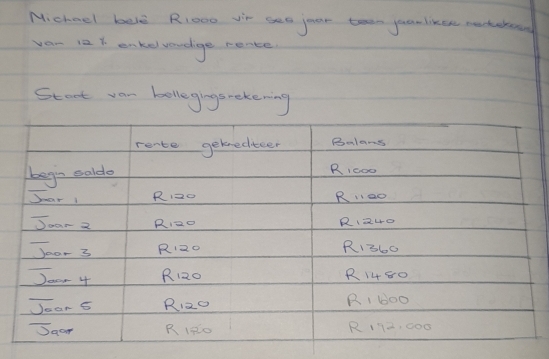 Michael belê R1000 vir ses jaar teen jaarlikse
van 12% enkelvoudige rente.
Staat van bellegingsrekening
rente gekrediteer Balans
begin saldo R1000
Jaar 1 R120 R1120
Jaar 2 R120 R1240
Jaar 3 R120 R1360
Jaar 4 R120 R1480
Jaar 5 R120 R1600
Jaar R120 R172.000